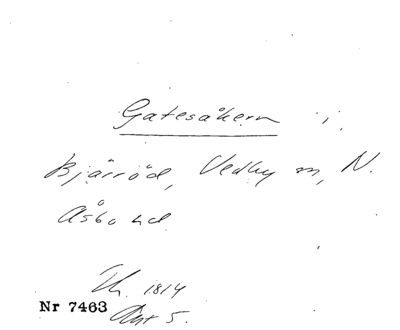 Gatesåkern i.
Bjärröd, Vedby sn, N.
Åsbo hd.
Uh. 1814
Akt 5.
Nr 7463